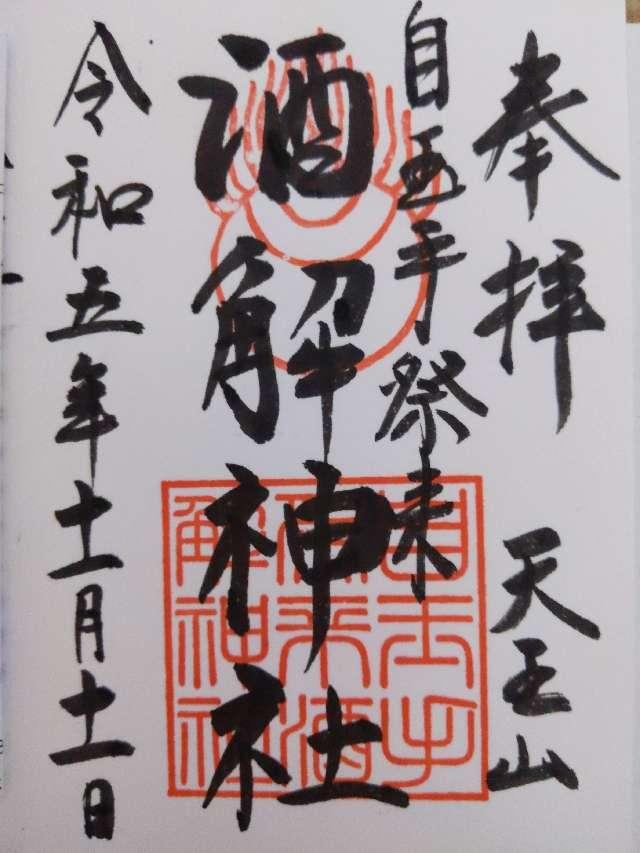 奉拝 天王山
自玉手祭来
酒解神社
令和五年十一月十一日
自玉手
祭来酒
解神社